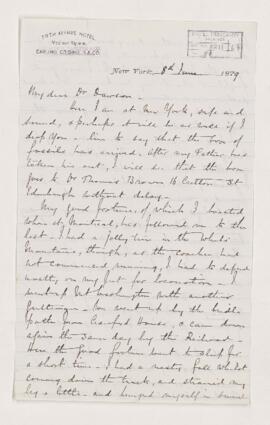 FIFTH AVENUE HOTEL
New York, 8th June 1879
My dear Dr Dawson -
Here I am at New York, safe and
sound, & perhaps it will be as well if I
drop you a line to say that the box of
fossils has arrived. After my Father has
taken his out, I will see that the box
goes to Dr Thomas Brown 16 St
Edinburgh without delay.
My good fortune, of which I boasted
when at Montreal, has followed me to the
last - I had a jolly time in the White
Mountains, though, as the coaches had
not commenced running, I had to depend
mostly on my feet for locomotion - I
went up Mt Washington with another
gentleman - we went up by the bridle
path from Crawford House, & came down
again the same day by the Railroad -
Here the good fortune went to sleep for
a short time - I had a nasty fall whilst
coming down the track, and strained my
leg a little - and bunged myself in several